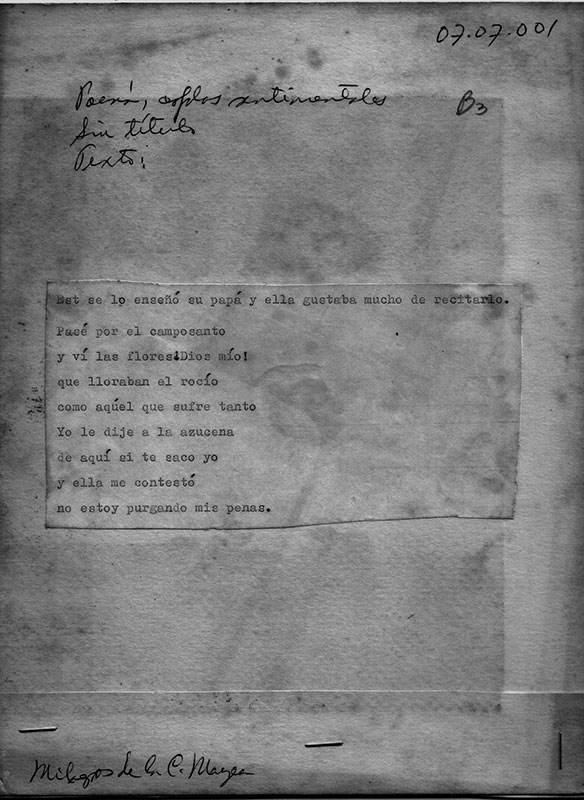 07.07.001
Poema, coplas sentimentales
B3
Sin título
Texto:
Est se lo enseñó su papá y ella gustaba mucho de recitarlo.
Pasé por el camposanto
y ví las flores¡Dios mío!
que lloraban el rocío
como aqúel que sufre tanto
Yo le dije a la azucena
de aquí si te saco yo
y ella me contestó
no estoy purgando mis penas.
Milagros de la C.